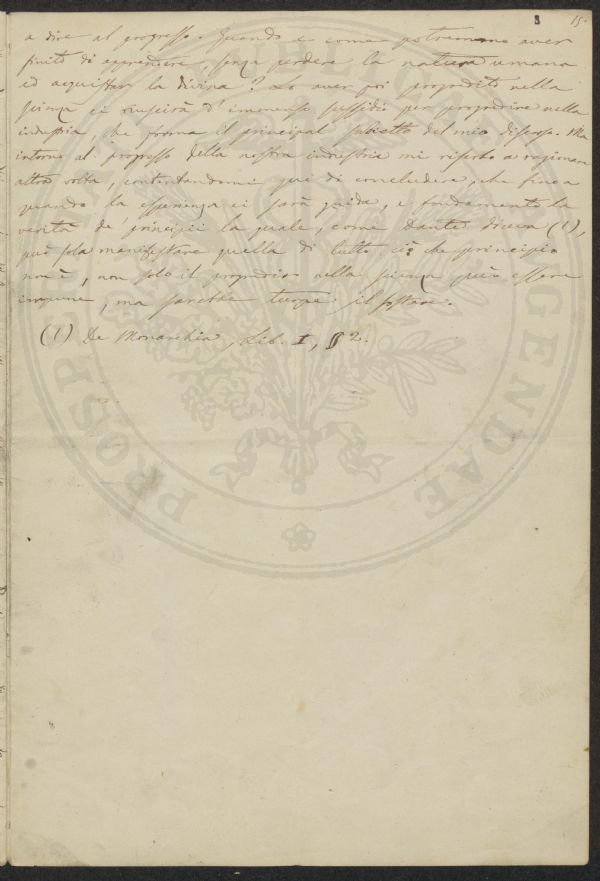 8 15.
a dire al progresso. Quando e come potremmo aver
finito di apprendere, senza perdere la natura umana
ed acquistar la divina? Lo aver poi progredito nella
scienza ci riuscirà d'immenso sussidio per progredire nella
industria, che forma il principal subietto del mio discorso. Ma
intorno al progresso della nostra industria mi riserbo a ragionare
altra volta, contentandomi qui di concludere, che fino a
quando la esperienza ci sarà guida, e fondamento la
verità de' principii la quale, come Dante diceva (1),
può sola manifestare quella di tutto ciò che principio
non è, non solo il progredire nella scienza può essere
comune, ma sarebbe turpe il sostare.
(1) De Monarchia, Lib. I, § 2.
PROSPICIENDAE AGENDAE